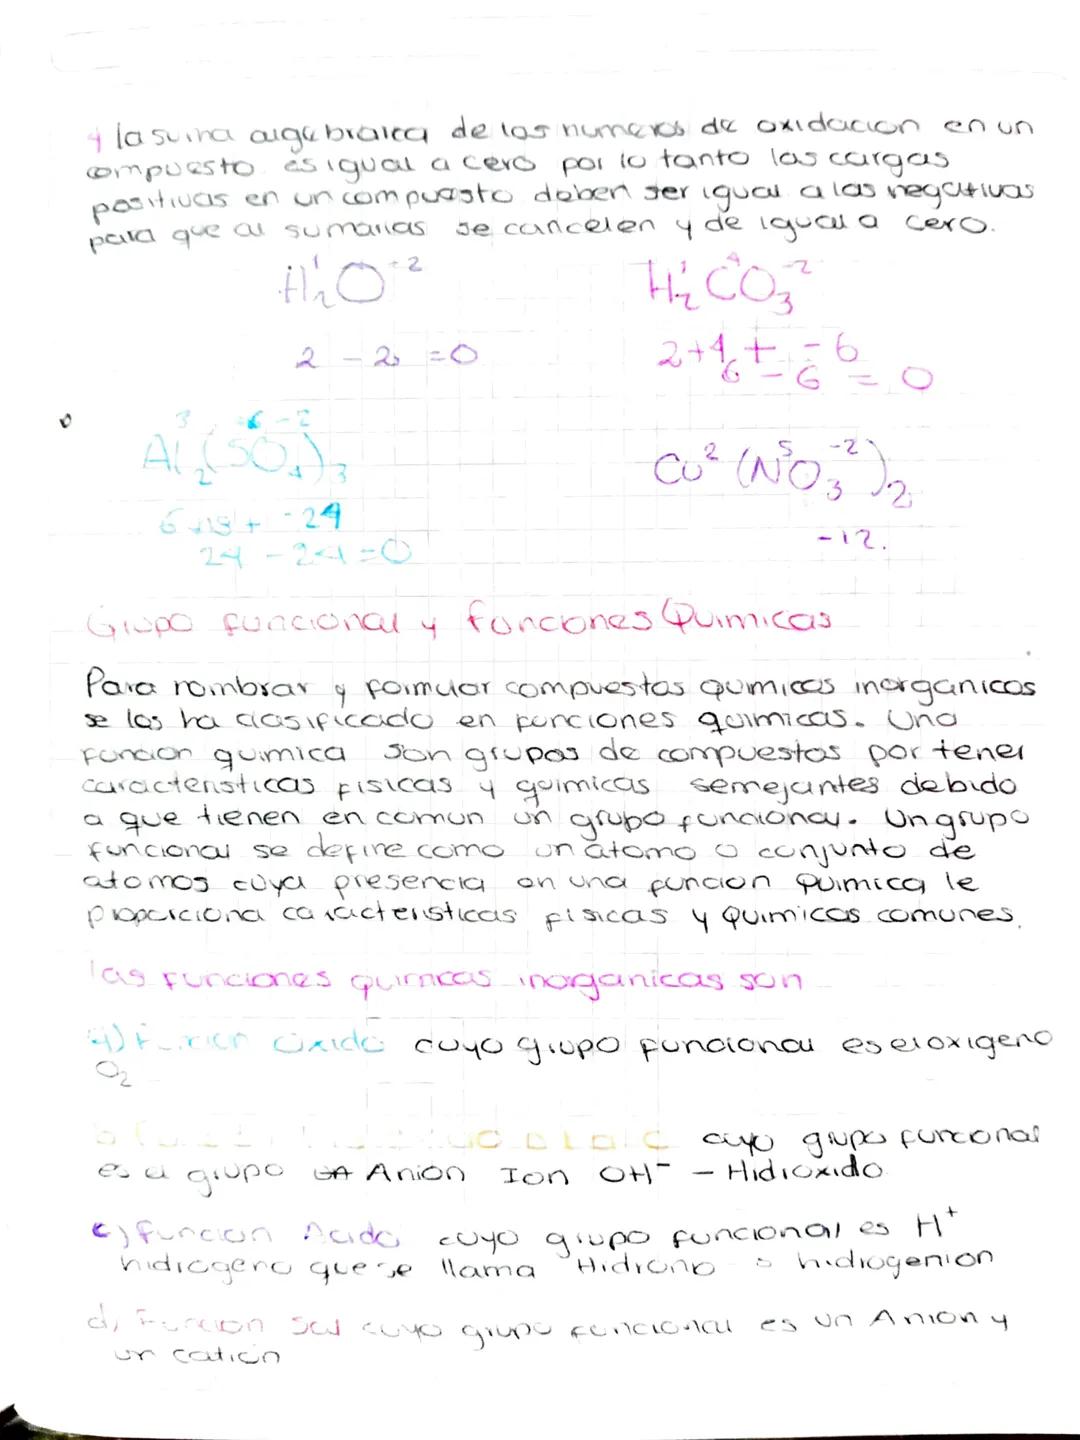 4 la suma algebraica de los numeros de oxidacion en un
compuesto es igual a cero por lo tanto las cargas
positivas en un compuesto deben ser igual a las negativas
para que al sumarlas se cancelen y de igual a cero.
H₂¹O⁻² H₂¹C⁴O₃⁻²
2 - 2 = 0 2+4 + -6
6 - 6 = 0
Al₂³(S⁶O₄⁻²)₃ Cu² (N⁵O₃⁻²)₂
6 +18 + -24
-12.
24 - 24 = 0
Grupo funcional y funciones Quimicas
Para nombrar y formular compuestos quimicos inorganicos
se los ha clasificado en funciones quimicas. Una
funcion quimica son grupos de compuestos por tener
caracteristicas fisicas y quimicas semejantes debido
a que tienen en comun un grupo funcional. Un grupo
funcional se define como un atomo o conjunto de
atomos cuya presencia en una funcion Quimica le
proporciona caracteristicas fisicas y Quimicas comunes.
las funciones quimicas inorganicas son
a) Funcion Oxido cuyo grupo funcional es el oxigeno
O₂
b cuyo grupo funcional
es el grupo Anion Ion OH⁻ - Hidroxido
c) funcion Acido cuyo grupo funcional es H⁺
hidrogeno que se llama Hidrono o hidrogenion
d) Funcion Sal cuyo grupo funcional es un Anion y
un cation